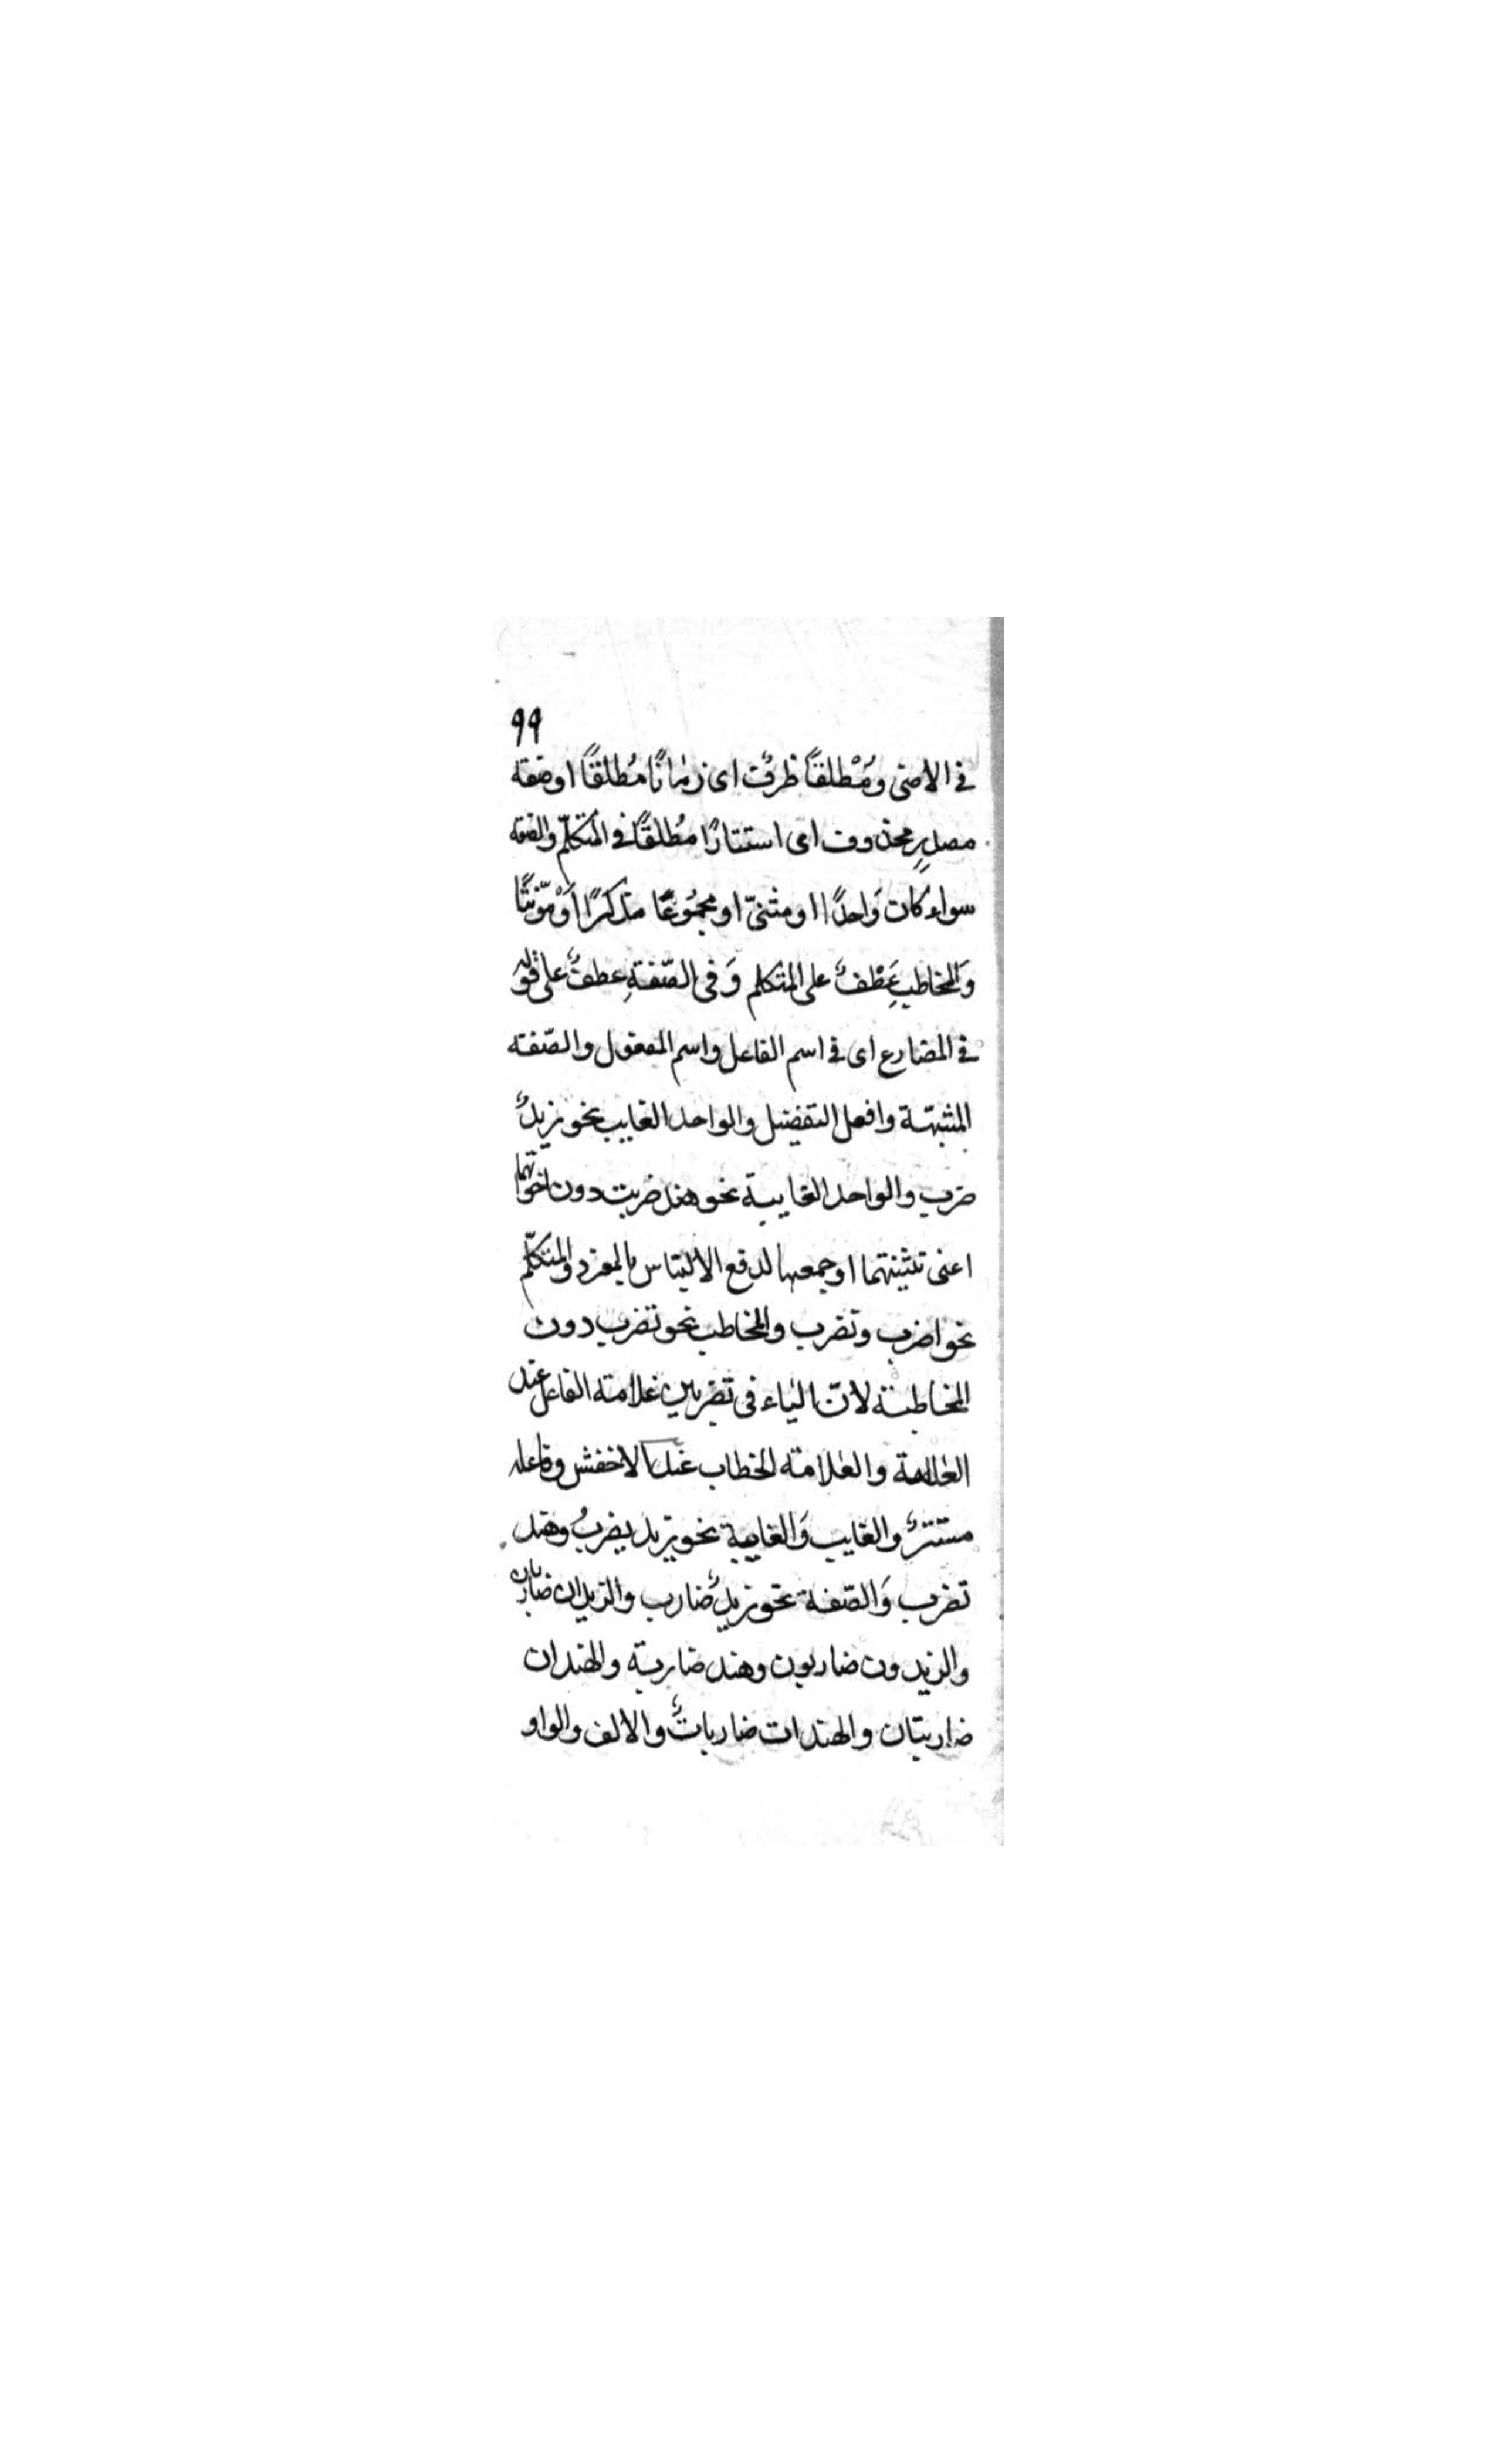 ٩٩
في الاضى ومُطْلقاً ظرفٌ اى زمٰاناً مُطلقًا اوصفة
مصدرٍ محذوف اى استتارًا مطُلقًا في المتكلّم والصفة
سواء كان وَاحدًا او مثنىّ او مجمُوعًا مذكرًا اَوْ مؤنثًا
وَالمخاطبِ عَطْفٌ على المتكلم وَفى الصّفةِ عطفٌ على قوله
في المضارع اى في اسم الفاعل واسم المفعول والصّفة
المشبهّة وافعل التفضيل والواحد الغايب نحو زيدٌ
ضرب والواحد الغايبة نحو هند ضربت دون اخواتهما
اعنى تثنيتهما او جمعهما لدفع الالتباس بالمفرد والمتكلّم
نحو اضرب وتضرب والمخاطب نحو تضرب دون
المخاطبة لانّ اليٰاء فى تضربين علٰامة الفاعل عند
العٰلامة والعٰلامة الخطاب عند الاخفش وفاعله
مستترٌ والغايب وَالغايبة نحو زيد يضربُ وهند
تضرب وَالصّفة نحو زيدٌ ضارب والزيدان ضاربان
والزيدون ضاربون وهند ضاربة والهندان
ضاربتان والهندات ضارباتٌ والالف والواو